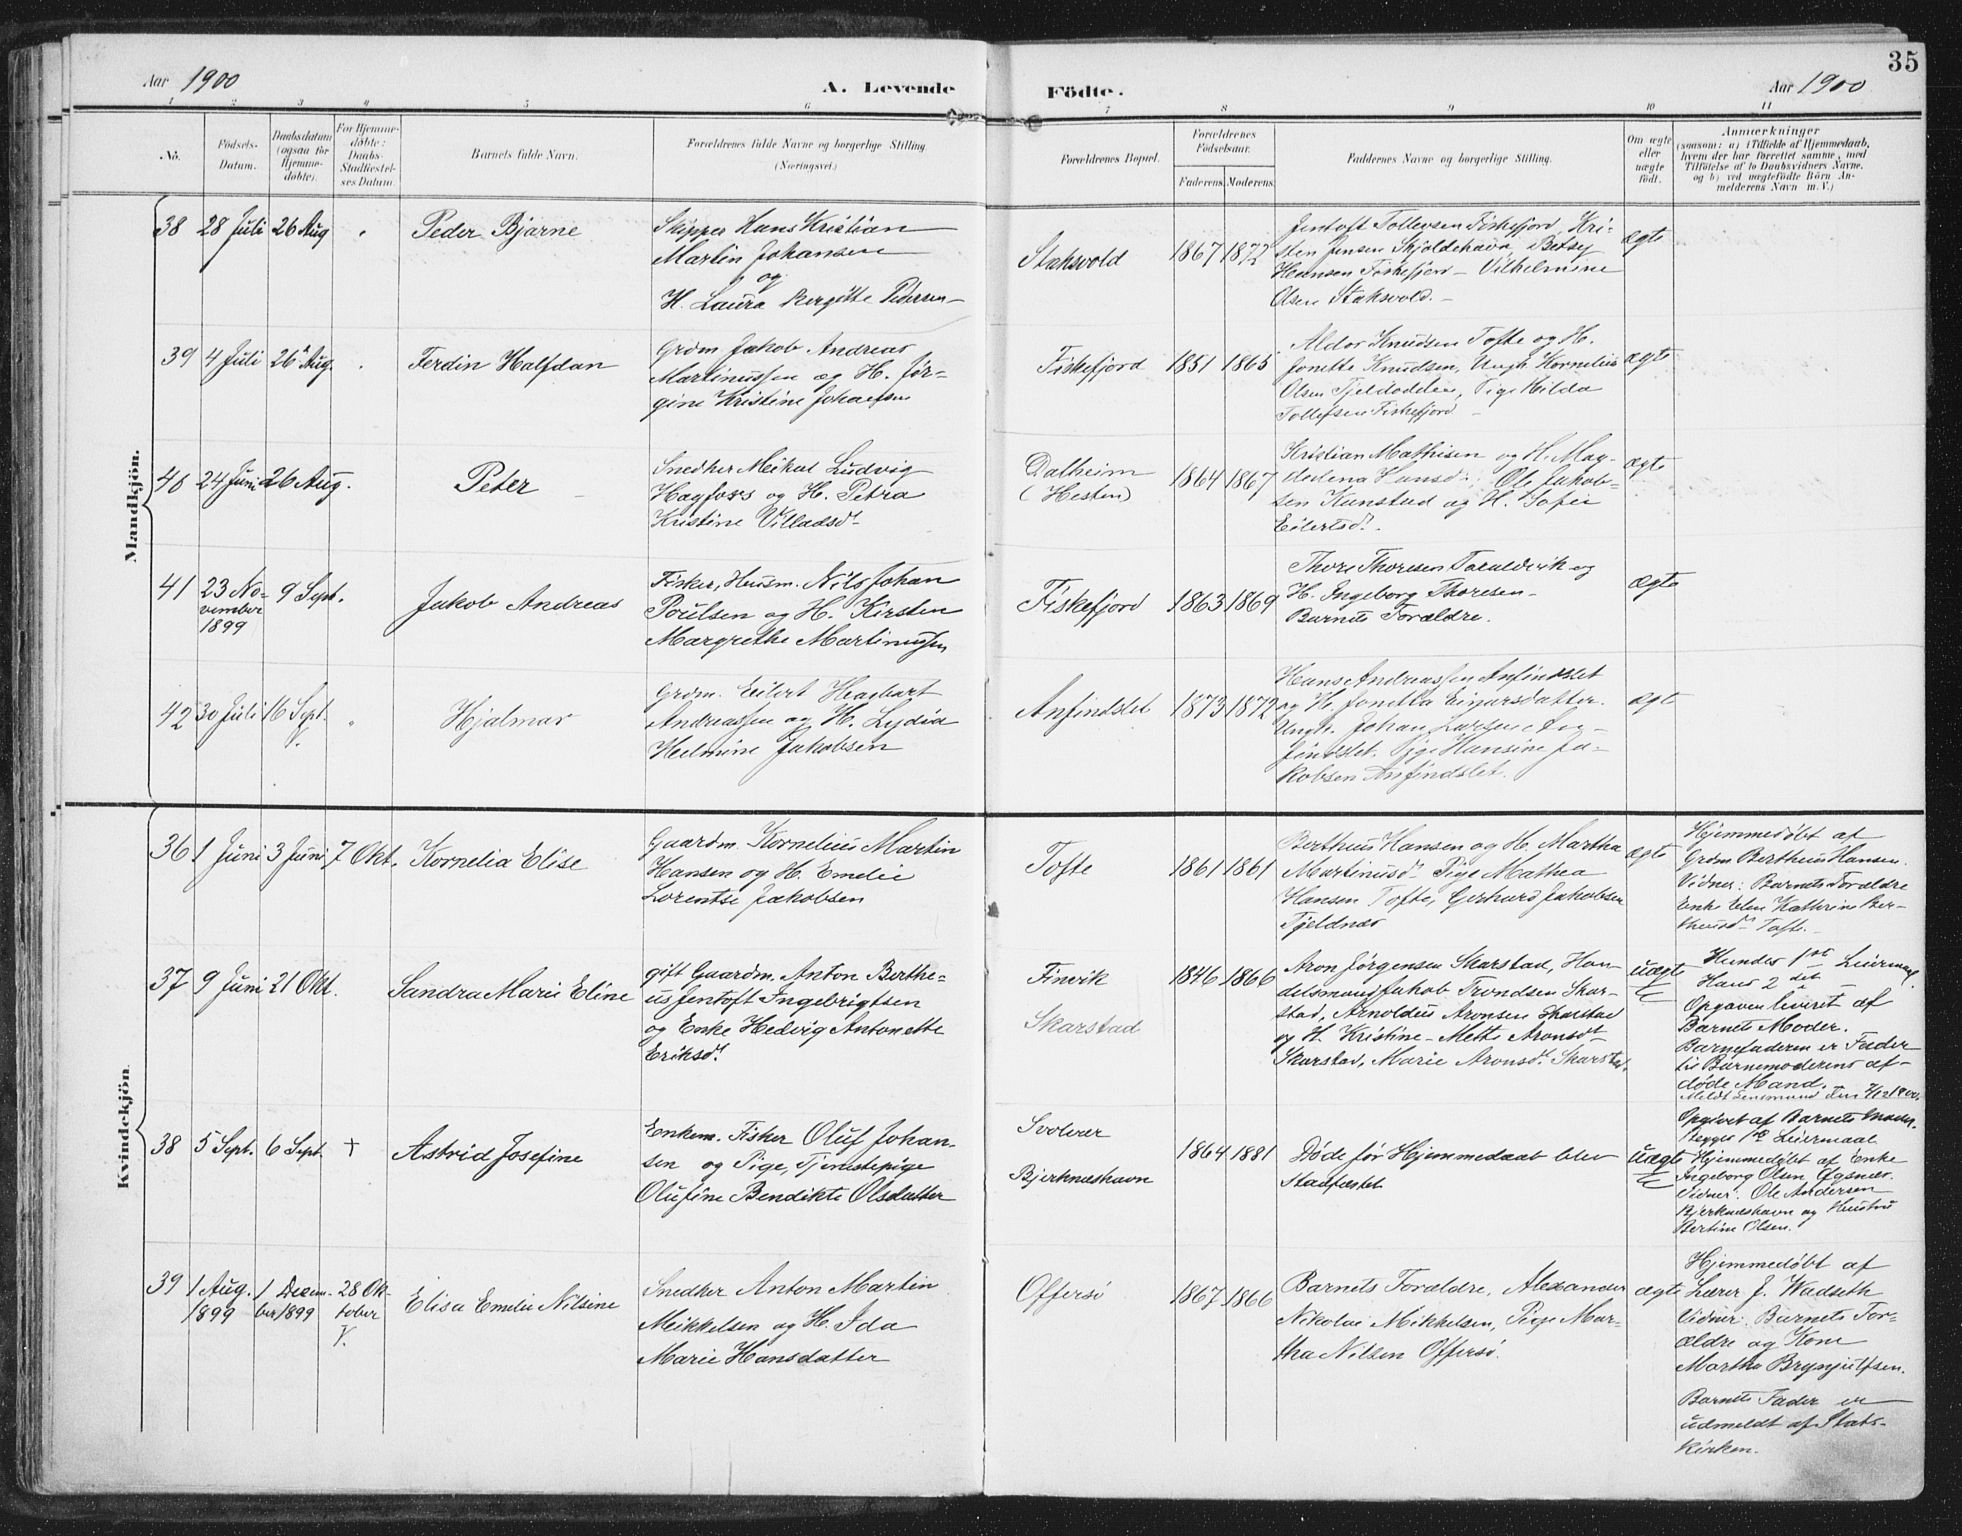 35
Aar 1900
A. Levende Födte.
Aar 1900
1 2 3 4 5 6 7 8 9 10 11
No.
Födsels-
Datum.
Daabsdatum
(ogsaa for
Hjemme-
döbte).
For Hjemme-
döbte:
Daabs-
Stadfæstel-
ses Datum
Barnets fulde Navn.
Forældrenes fulde Navne og borgerlige Stilling
(Næringsvei.)
Forældrenes Bopæl.
Forældrenes
Födselsaar.
Faderens. Moderens.
Faddernes Navne og borgerlige Stilling.
Om ægte
eller
uægte
födt.
Anmærkninger
(saasom: a) i Tilfælde af Hjemmedaab,
hvem der har forrettet samme, med
Tilföielse af to Daabsvidners Navne,
og b) ved uægtefödte Börn An-
melderens Navn m. V.)
Mandkjön.
38 28 Juli 26 Aug Peder Bjarne
Skipper Hans Kristian
Martin Johansen
og
H. Laura Bergitte Pedersen
Staksvold
1867 1872
Jentoft Tollevsen Fiskefjord, Kri-
sten Jensen Skjoldehavn, Betsy
Hansen Fiskefjord – Vilhelmine
Olsen Staksvold.
ægte
39 4 Juli 26 Aug. Ferdin Halfdan
Grdm Jakob Andreas
Martinussen og H. Jör-
gine Kristine Johansen
Fiskefjord
1851 1865
Aldor Knudsen Tofte og H.
Jonette Knudsen, Ungk. Kornelius
Olsen Tjeldodden, Pige Hilda
Tollefsen Fiskefjord
ægte
40 24 Juni 26 Aug. Peter
Snedker Meikal Ludvig
Hagfors og H. Petra
Kristine Villadsd.
Dalheim
(Hesten)
1864 1867
Kristian Mathisen og H. Mag-
dalena Hansd., Ole Jakob-
sen Kunstad og H. Sofie
Eilertsd.
ægte
41 23 No-
vember
1899
9 Sept. Jakob Andreas
Fisker, Husm. Nils Johan
Poulsen og H. Kirsten
Margrethe Martinussen
Fiskefjord
1863 1869
Thore Thoresen Foraldvik og
H. Ingeborg Thoresen
Barnets Forældre.
ægte
42 30 Juli 16 Sept. Hjalmar
Grdm. Eilert Hagbart
Andreassen og H. Lydia
Helmine Jakobsen
Anfindslet
1873 1872
Hans Andreassen Anfindslet
og H. Jonetta Einarsdatter.
Ungk. Johan Larsen An-
findslet. Pige Hansine Ja-
kobsen Anfindslet.
ægt
Kvindekjön.
36 1 Juni 3 Juni 7 Okt. Kornelia Elise
Gaardm. Kornelius Martin
Hansen og H. Emelie
Lorentse Jakobsen
Tofte
1861 1861
Bertheus Hansen og H. Martha
Martinusd. Pige Mathea
Hansen Tofte, Gerhard Jakobsen
Tjeldnæs
ægte
Hjemmedøbt af
Grdm Bertheus Hansen.
Vidner: Barnets Forældre
Enke Elen Kathrine Ber-
theusd. Tofte.
37 9 Juni 21 Okt. Sandra Marie Eline
gift Gaardm. Anton Berthe-
us Jentoft Ingebrigtsen
og Enke Hedvig Antonette
Eriksd.
Finvik
Skarstad
1846 1866
Aron Jørgensen Skarstad, Han-
delsmand Jakob Trondsen Skar-
stad, Arnoldus Aronsen Skarstad
og H. Kristine – Mette Aronsd.
Skarstad, Marie Aronsd. Skarstad.
uægte
Hendes 1ste Leiermaal
Hans 2det
Opgaven leveret af
Barnets Moder.
Barnefaderen er Fader
til Barnemoderens af-
døde Mand.
38 5 Sept. 6 Sept. + Astrid Josefine
Enkem. Fisker Oluf Johan-
sen og Pige, Tjenstepige
Olufine Bendikte Olsdatter
Svolvær
Bjerknæshavn
1864 1881
Døde før Hjemmedaab blev
Stadfæstet
uægte
Opgivet af Barnets Moder.
Begges 1ste Leiermaal
Hjemmedøbt af Enke
Ingeborg Olsen Øgsnæs.
Vidner: Ole Andersen
Bjerknæshavn og Hustru
Bertine Olsen.
39 1 Aug.
1899
1 Decem-
ber 1899
28 Ok-
tober
Elisa Emelie Nilsine
Snedker Anton Martin
Meikkelsen og H. Ida
Marie Hansdatter
Offersö
1867 1866
Barnets Forældre, Alexander
Nikolai Mikkelsen, Pige Mar-
tha Nilsen Offersö.
ægte
Hjemmedøbt af
Lærer J. Wadseth
Vidner: Barnets For-
ældre og Kone
Martha Brynjulfsen.
Barnets Fader er
udmeldt af Stats-
kirken.